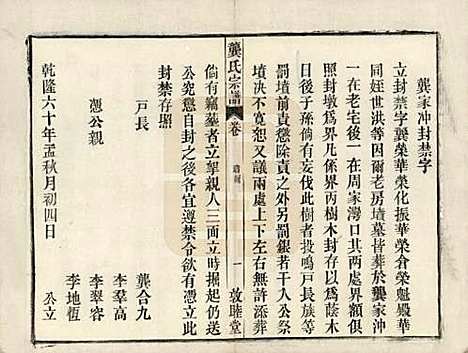 龔家冲封禁字
立封禁字龔榮華榮化振華榮倉榮魁殿華
同姪世洪等因爾老房墳墓皆葬於龔家冲
一在老宅後一在周家灣口其两處界額原
照封墳界内具係界内樹木封存以爲蔭木
日後子孫倘有妄伐此樹者投鳴戸長族等
罰墳前責懲除責之外另罰銀若干人公祭
墳决不寬恕又議兩處上下左右無許添葬
倘有竊葬者立拏親人三面立時掘起仍送
公究懲自封之後各宜遵禁令欲有憑立此
封禁存照
戸長 龔合九
憑公親 李羣高
李翠容
李地恆
乾隆六十年孟秋月初四日 公立
龔氏宗譜
卷
一 敦睦堂